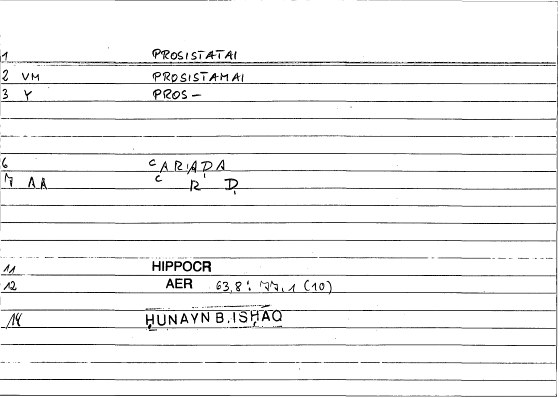 1 PROSISTATAI
2 VM PROSISTAMAI
3 Y PROS-
6 ʿARAḌA
7 AA ʿ R Ḍ
11 HIPPOCR
12 AER 63,8: 77,1 (10)
14 ḤUNAYN B. ISḤAQ